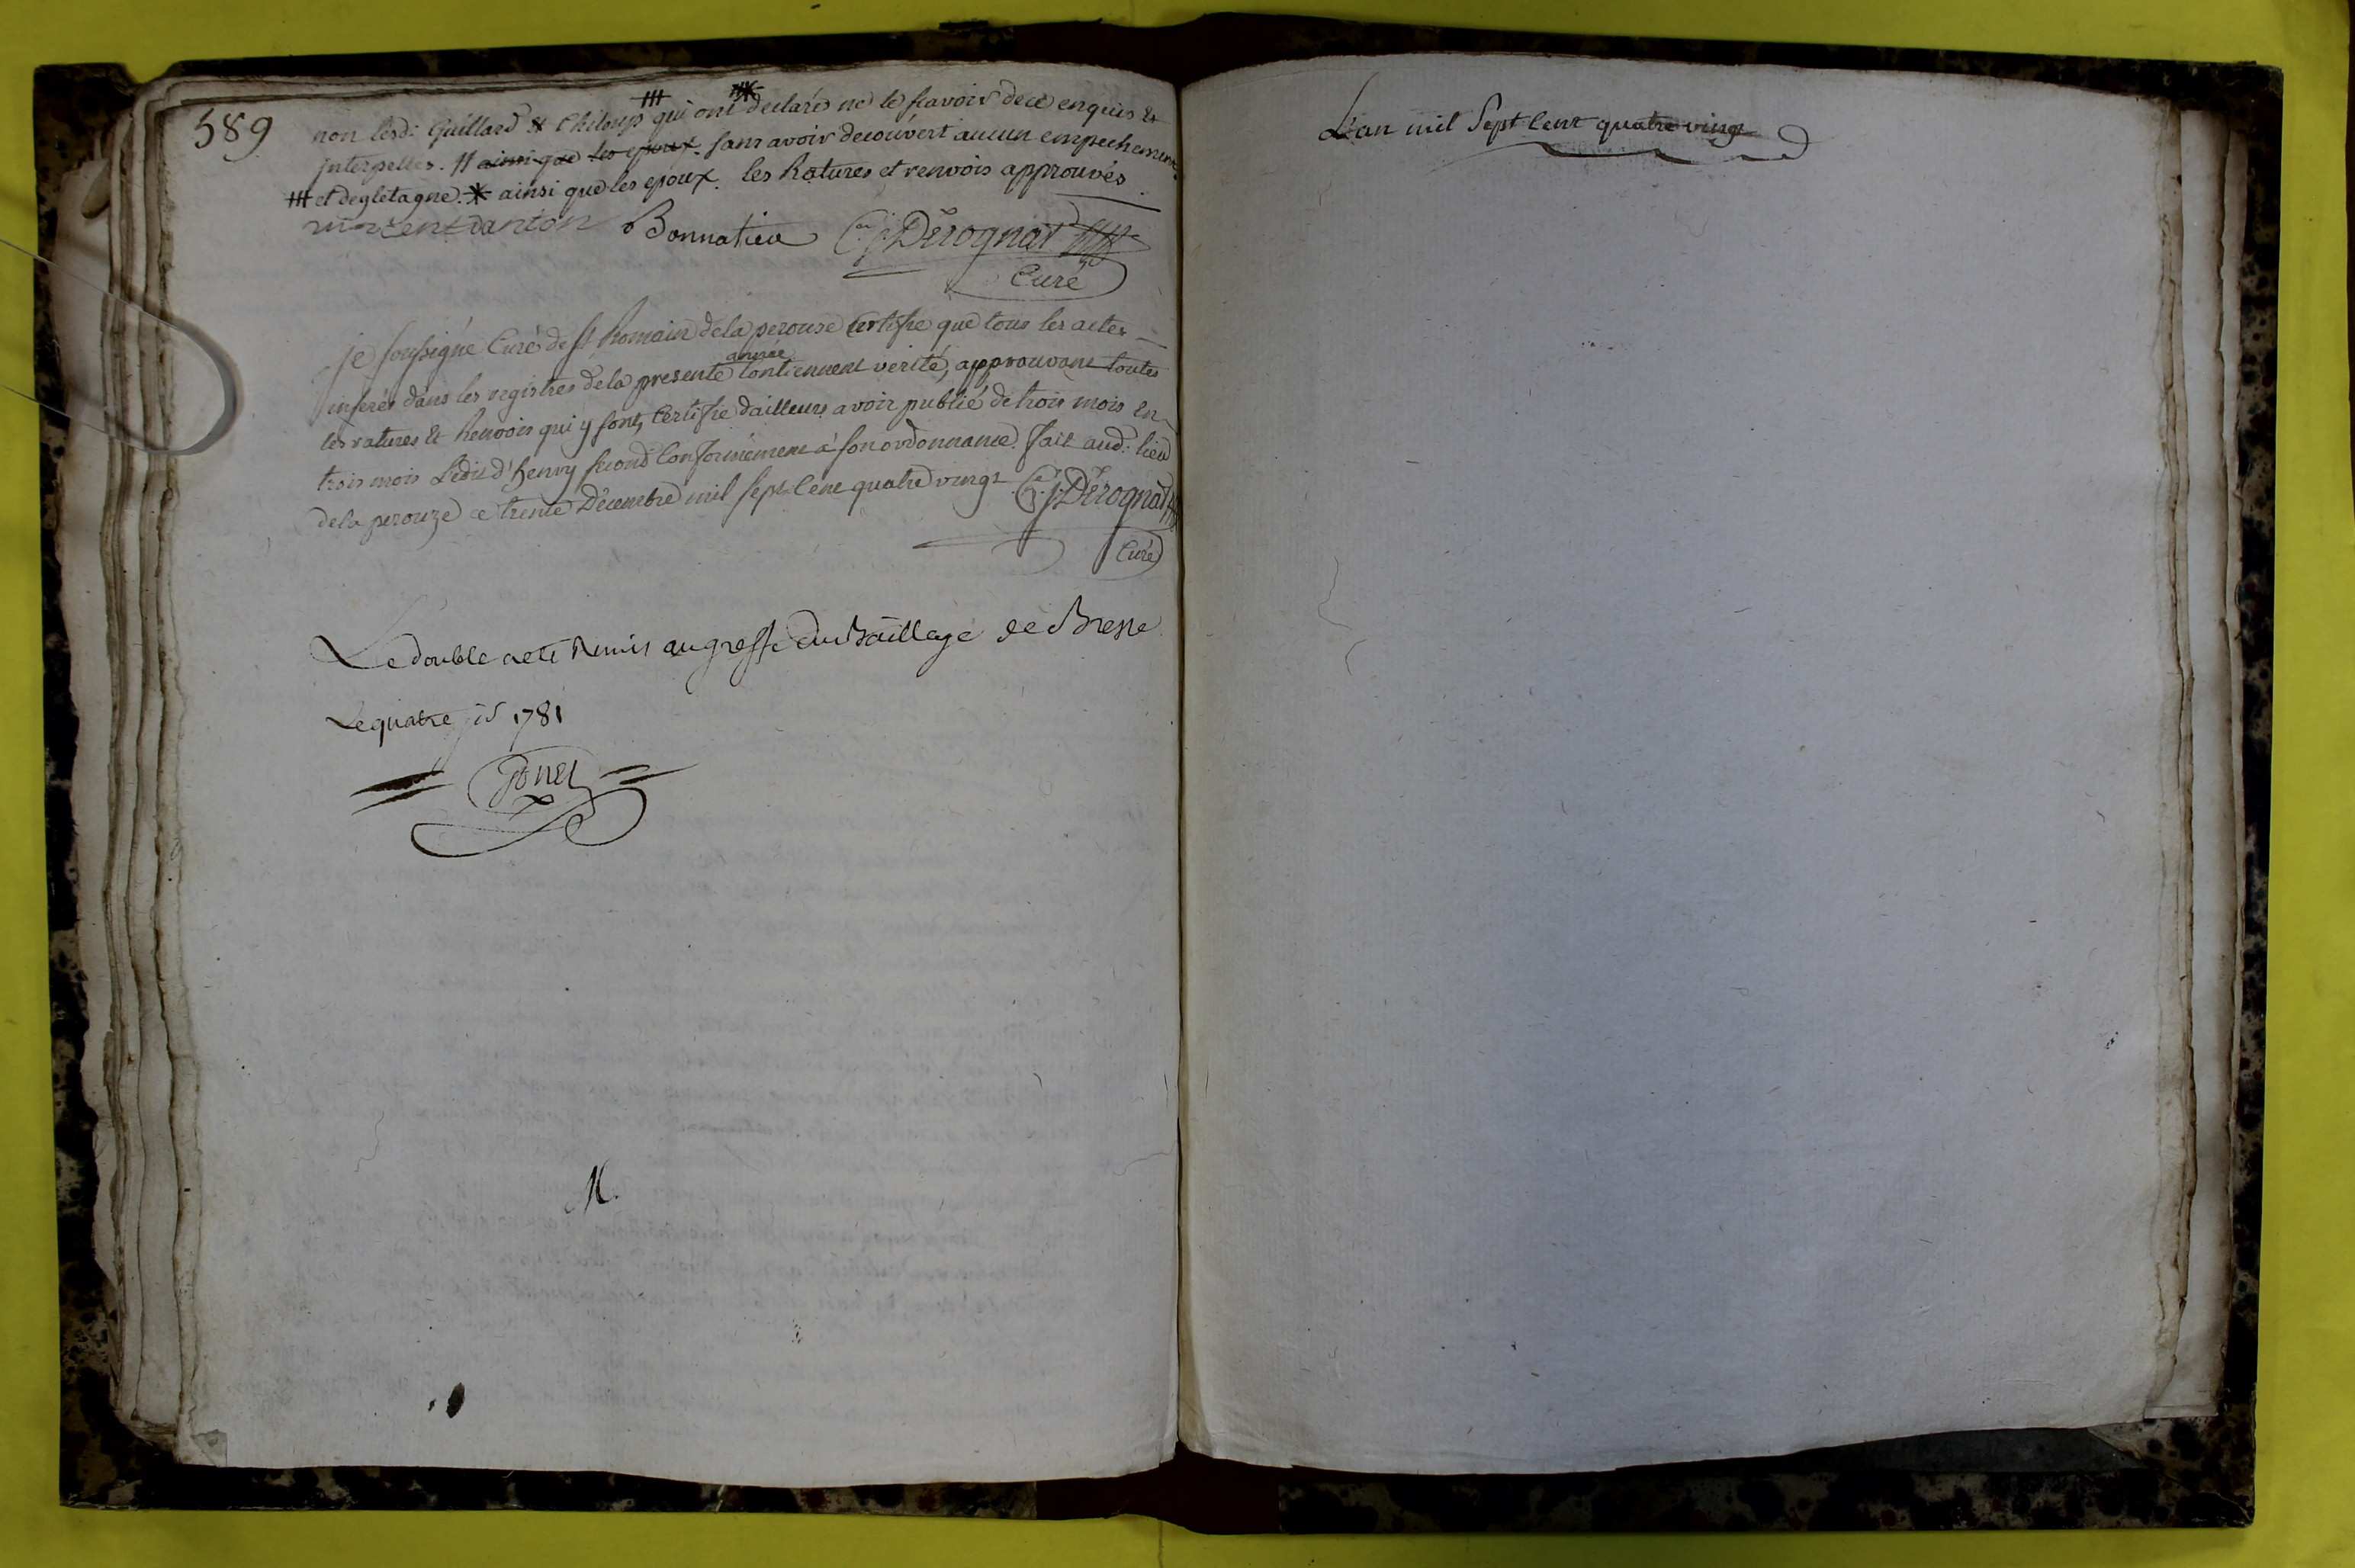 589
non lesd: Guillard & Chiloup ⧻ qui ont ⧻* declarés ne le scavoir de ce enquis &
interpellés. // ainsi que les epoux. sans avoir decouvert aucun empechement
⧻ et degletagne. * ainsi que les epoux. les Ratures et renvois approuvés
vincent danton Bonnatieu Dérognat
Curé
je soussigné Curé de st Romain de la perouse Certifie que tous les actes
inserés dans les registres de la presente année Contiennent verité, approuvant toutes
les ratures & Renvois qui y sont, Certifie d'ailleurs avoir publié de trois mois en
trois mois L'edit d'henry second Conformement à son ordonnance. fait aud: lieu
de la perouze ce trente Décembre mil sept Cent quatre vingt Dérognat
Curé
Le double a eté Remis au greffe du Bailliage de Bresse
Le quatre js 1781
M.
L'an mil Sept Cent quatre vingt